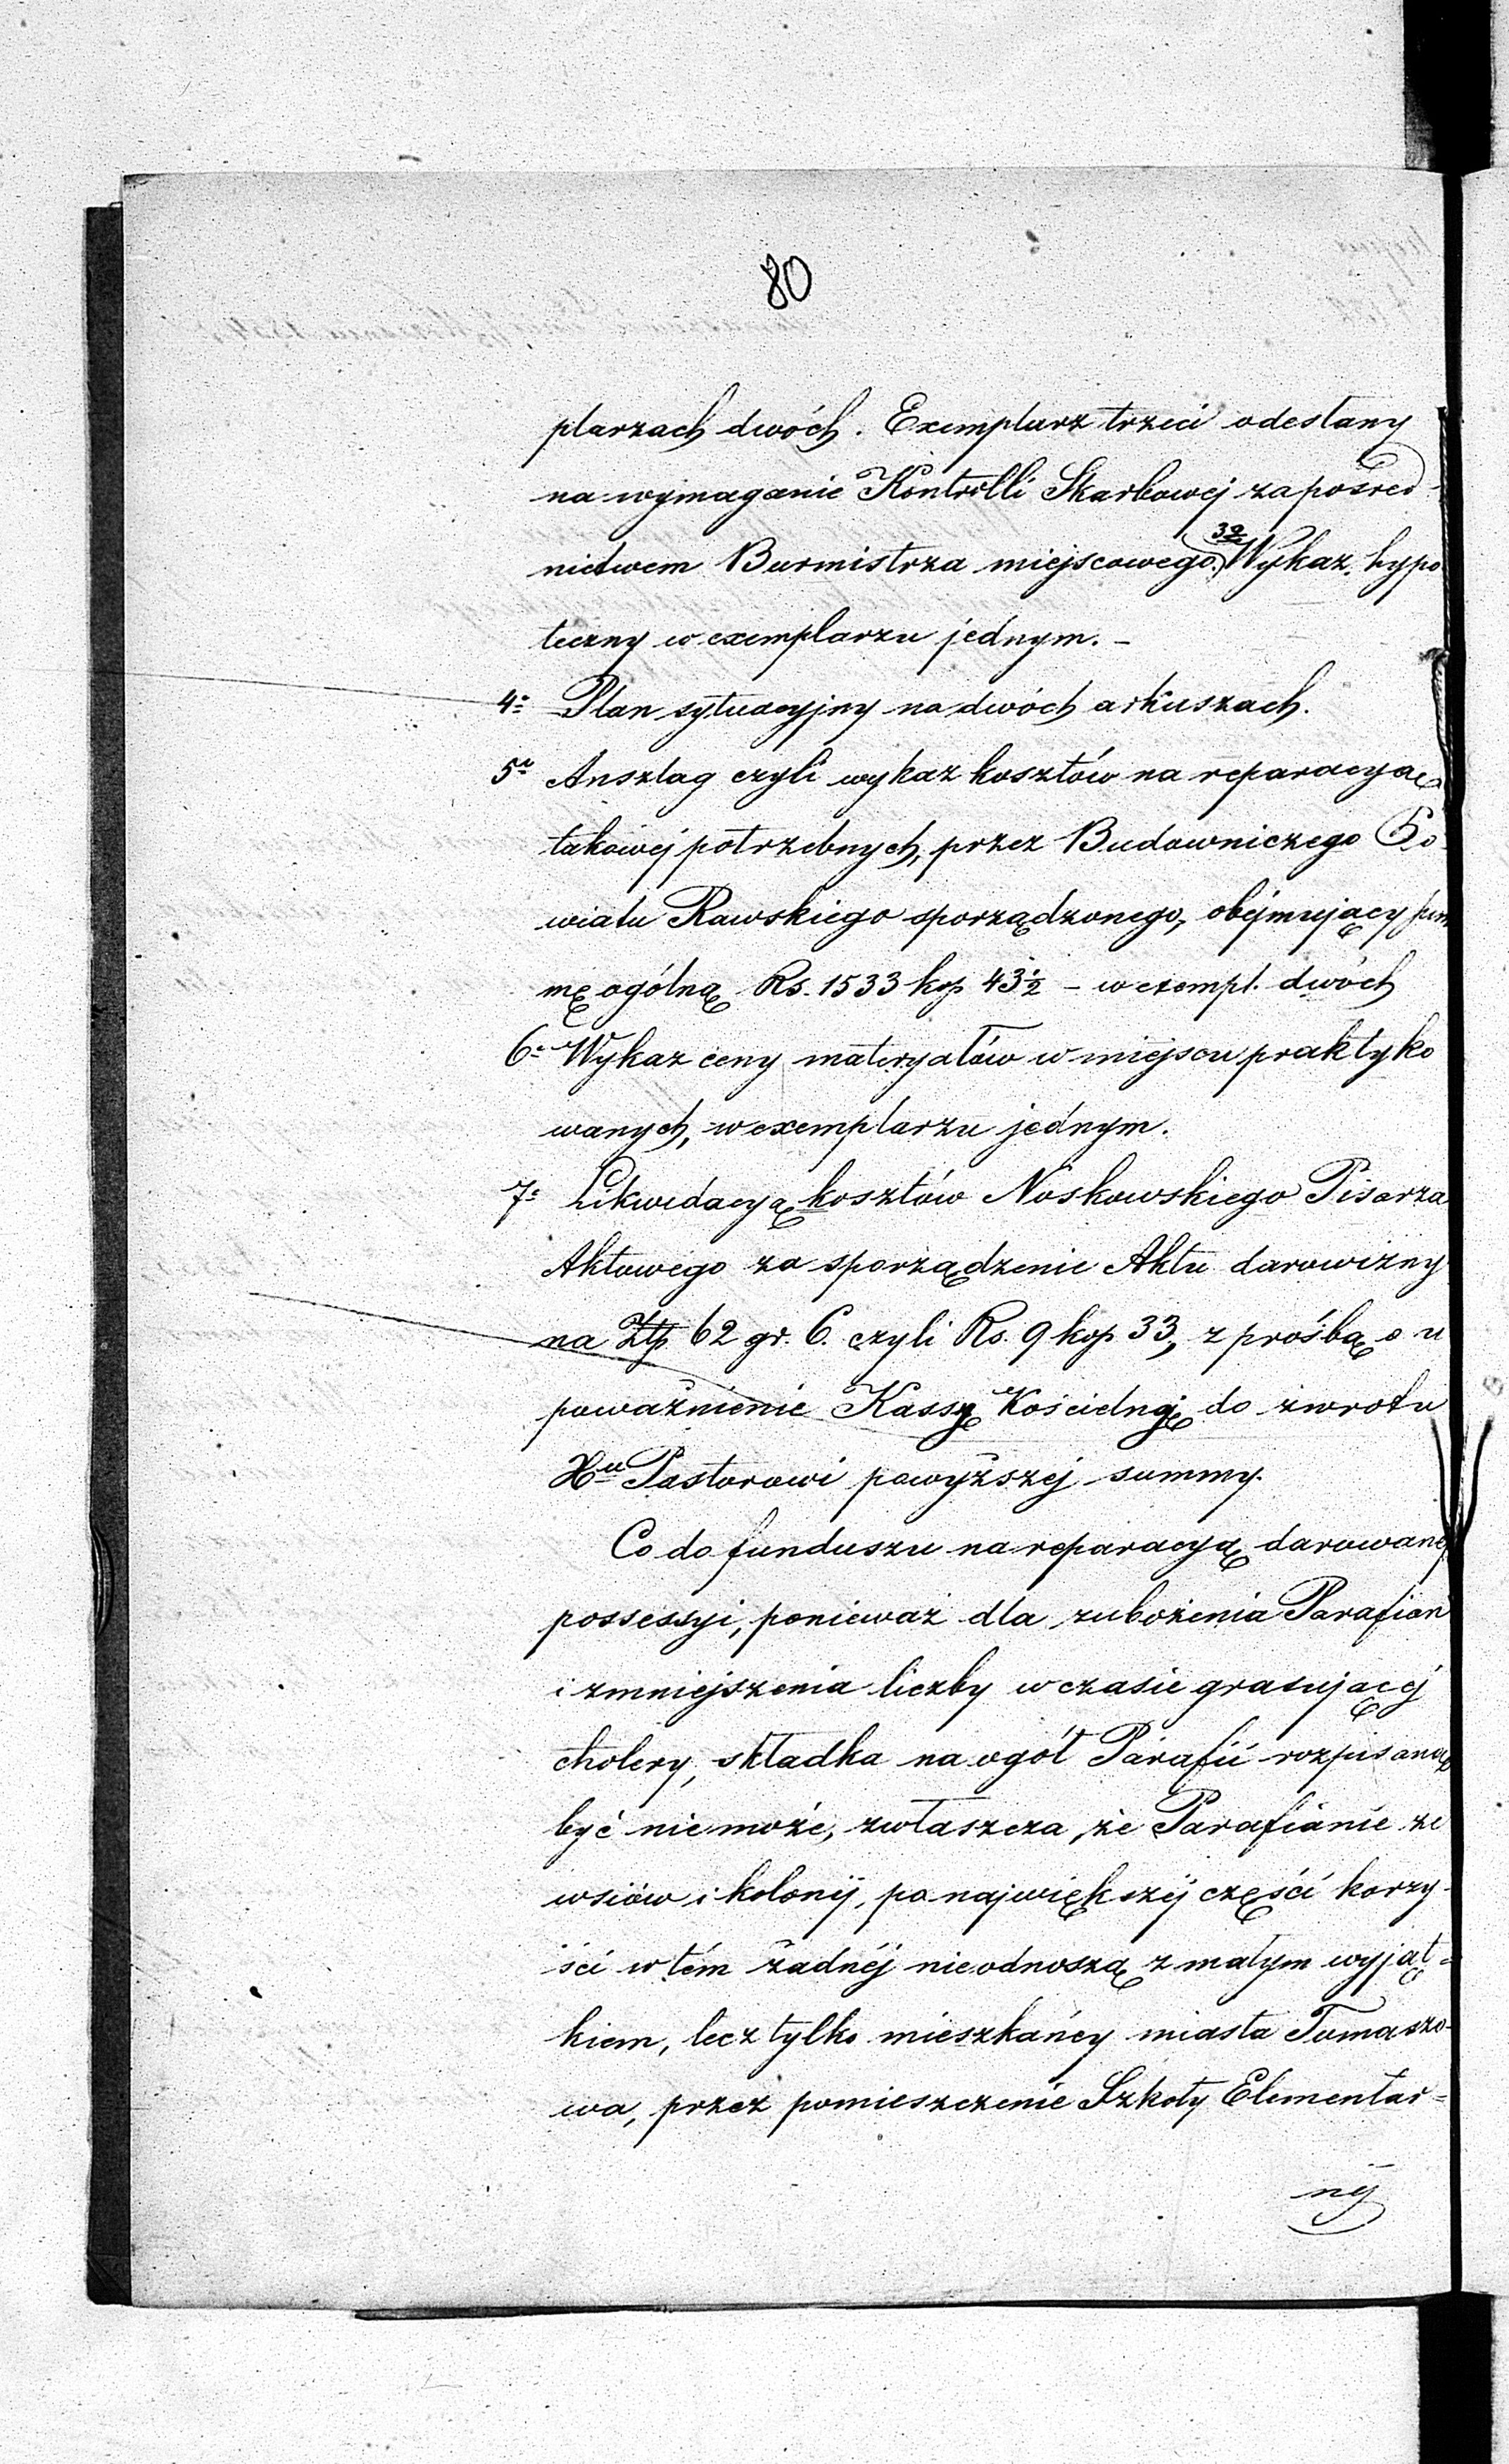 80
plarzach dwóch. Exemplarz trzeci odesłany
na wymaganie Kontrolli Skarbowej za pośred-
nictwem Burmistrza miejscowego. 3o Wykaz hypo
teczny w exemplarzu jednym. –
4o Plan sytuacyjny na dwóch arkuszach.
5o Anszlag czyli wykaz kosztów na reparacyą
takowéj potrzebnych, przez Budowniczego Po-
wiatu Rawskiego sporządzonego, obejmujący sum
mę ogólną Rs. 1533 kop 43½ – w exempl. dwóch
6o Wykaz ceny materyałów w miejscu praktyko
wanych, w exemplarzu jednym.
7o Likwidacyą kosztów Noskowskiego Pisarza
Aktowego za sporządzenie Aktu darowizny
na Złp 62 gr. 6. czyli Rs. 9 kop 33, z prośbą o u
poważnienie Kassy Kościelnej do zwrotu
Xu Pastorowi powyższej summy.
Co do funduszu na reparacyą darowanej
possessyi, ponieważ dla zubożenia Parafian
i zmniejszenia liczby w czasie grasującej
cholery, składka na ogół Parafii rozpisaną
być nie może, zwłaszcza, że Parafianie ze
wsiów i kolonij, po największéj części korzy-
ści w tém żadnéj nieodnoszą z małym wyjąt=
kiem, lecz tylko mieszkańcy miasta Tomaszo-
wa, przez pomieszczenie Szkoły Elementar=
néj